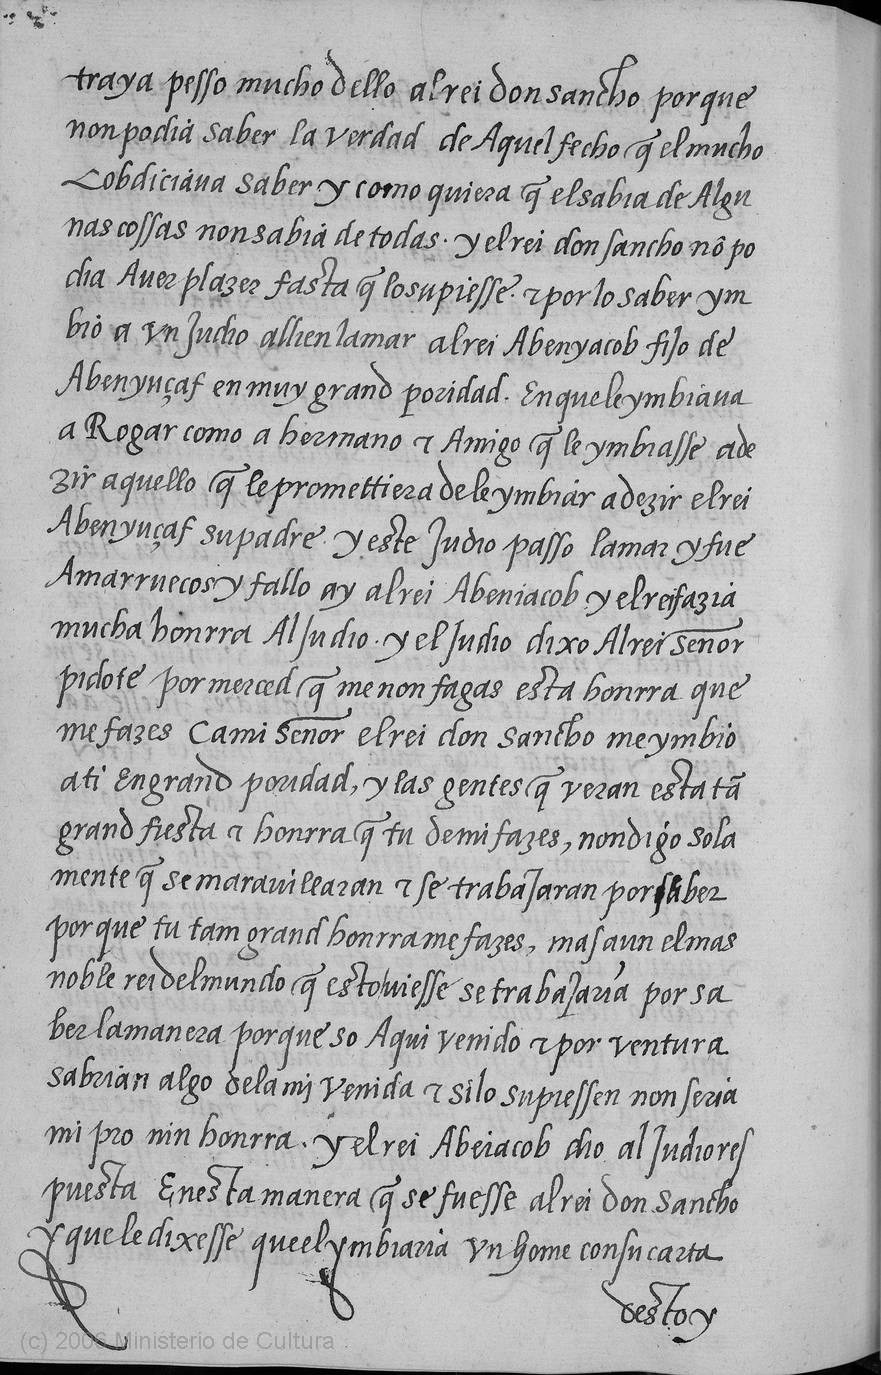 traya pesso mucho dello al rei don sancho porque
non podia saber la verdad de Aquel fecho q̃ el mucho
Cobdiciaua saber y como quiera q̃ el sabia de Algu
nas cossas non sabia de todas. y el rei don sancho nõ po
dia Auer plazer fasta q̃ lo supiesse. τ por lo saber ym
bio a vn Judio allien lamar al rei Abenyacob fijo de
Abenyuçaf en muy grand poridad. En que le ymbiaua
a Rogar como a hermano τ Amigo q̃ le ymbiasse a de
zir aquello q̃ le promettiera de le ymbiar a dezir el rei
Abenyuçaf su padre. y este Judio passo lamar y fue
A marruecos y fallo ay al rei Abeniacob. y el rei fazia
mucha honrra Al Judio. y el Judio dixo Al rei Señor
pidote por merced q̃ me non fagas esta honrra que
me fazes Ca mi Señor el rei don Sancho me ymbio
a ti En grand poridad, y las gentes q̃ veran esta tã
grand fiesta τ honrra q̃ tu de mi fazes, non digo sola
mente q̃ se marauillearan τ se trabaJaran por saber
por que tu tam grand honrra me fazes, mas aun el mas
noble rei del mundo q̃ estouiesse se trabaJaria por sa
ber la manera porque so Aqui venido τ por ventura
sabrian algo de la mj venida τ si lo supiessen non seria
mi pro nin honrra. y el rei Abeiacob dio al Judio res
puesta En esta manera q̃ se fuesse al rei don Sancho
y que le dixesse que el ymbiaria vn home con su carta
desto y
(c) 2006 Ministerio de Cultura